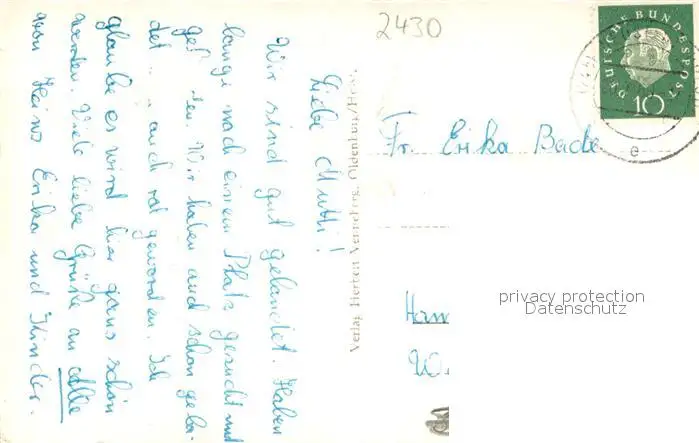 2430
DEUTSCHE BUNDESPOST
10
e
Fr. Erika Bade
privacy protection
Datenschutz
Verlag Herbert Venneberg, Oldenburg/Hann.
Liebe Mutti!
Wir sind gut gelandet. Haben
lange nach einem Platz gesucht und
Wir haben auch schon geba-
det auch rot geworden. Ich
glaube es wird hier ganz schön
werden. Viele liebe Grüße an alle
von Heinz Erika und Kinder.